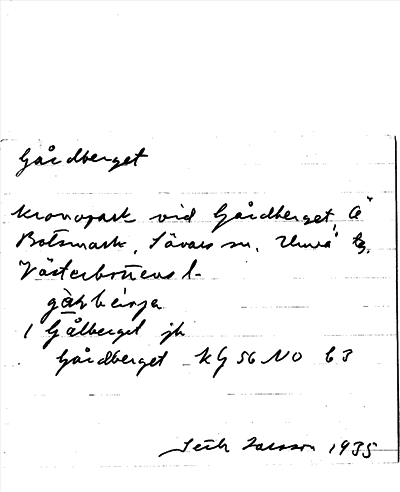 Gårdberget
Kronopark vid Gårdberget, å
Botsmark, Sävars sn, Umeå tg,
Västerbottens l-
1 Gålberget jb
Gårdberget KG 56 NO b3
Seth Larsson 1935